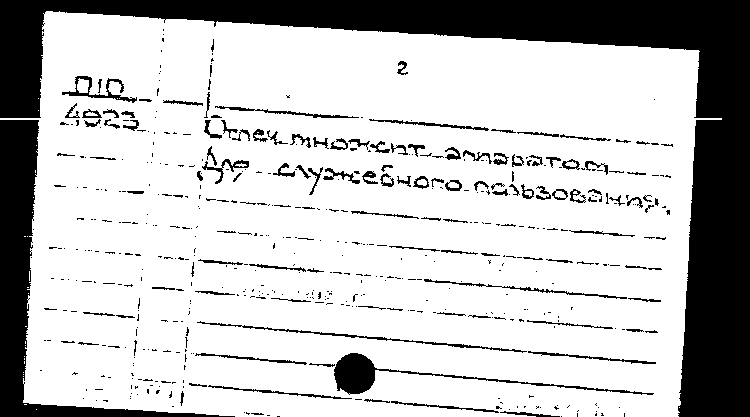 2
П10
4823
Отпеч. множит. аппаратом
Для служебного пользования.